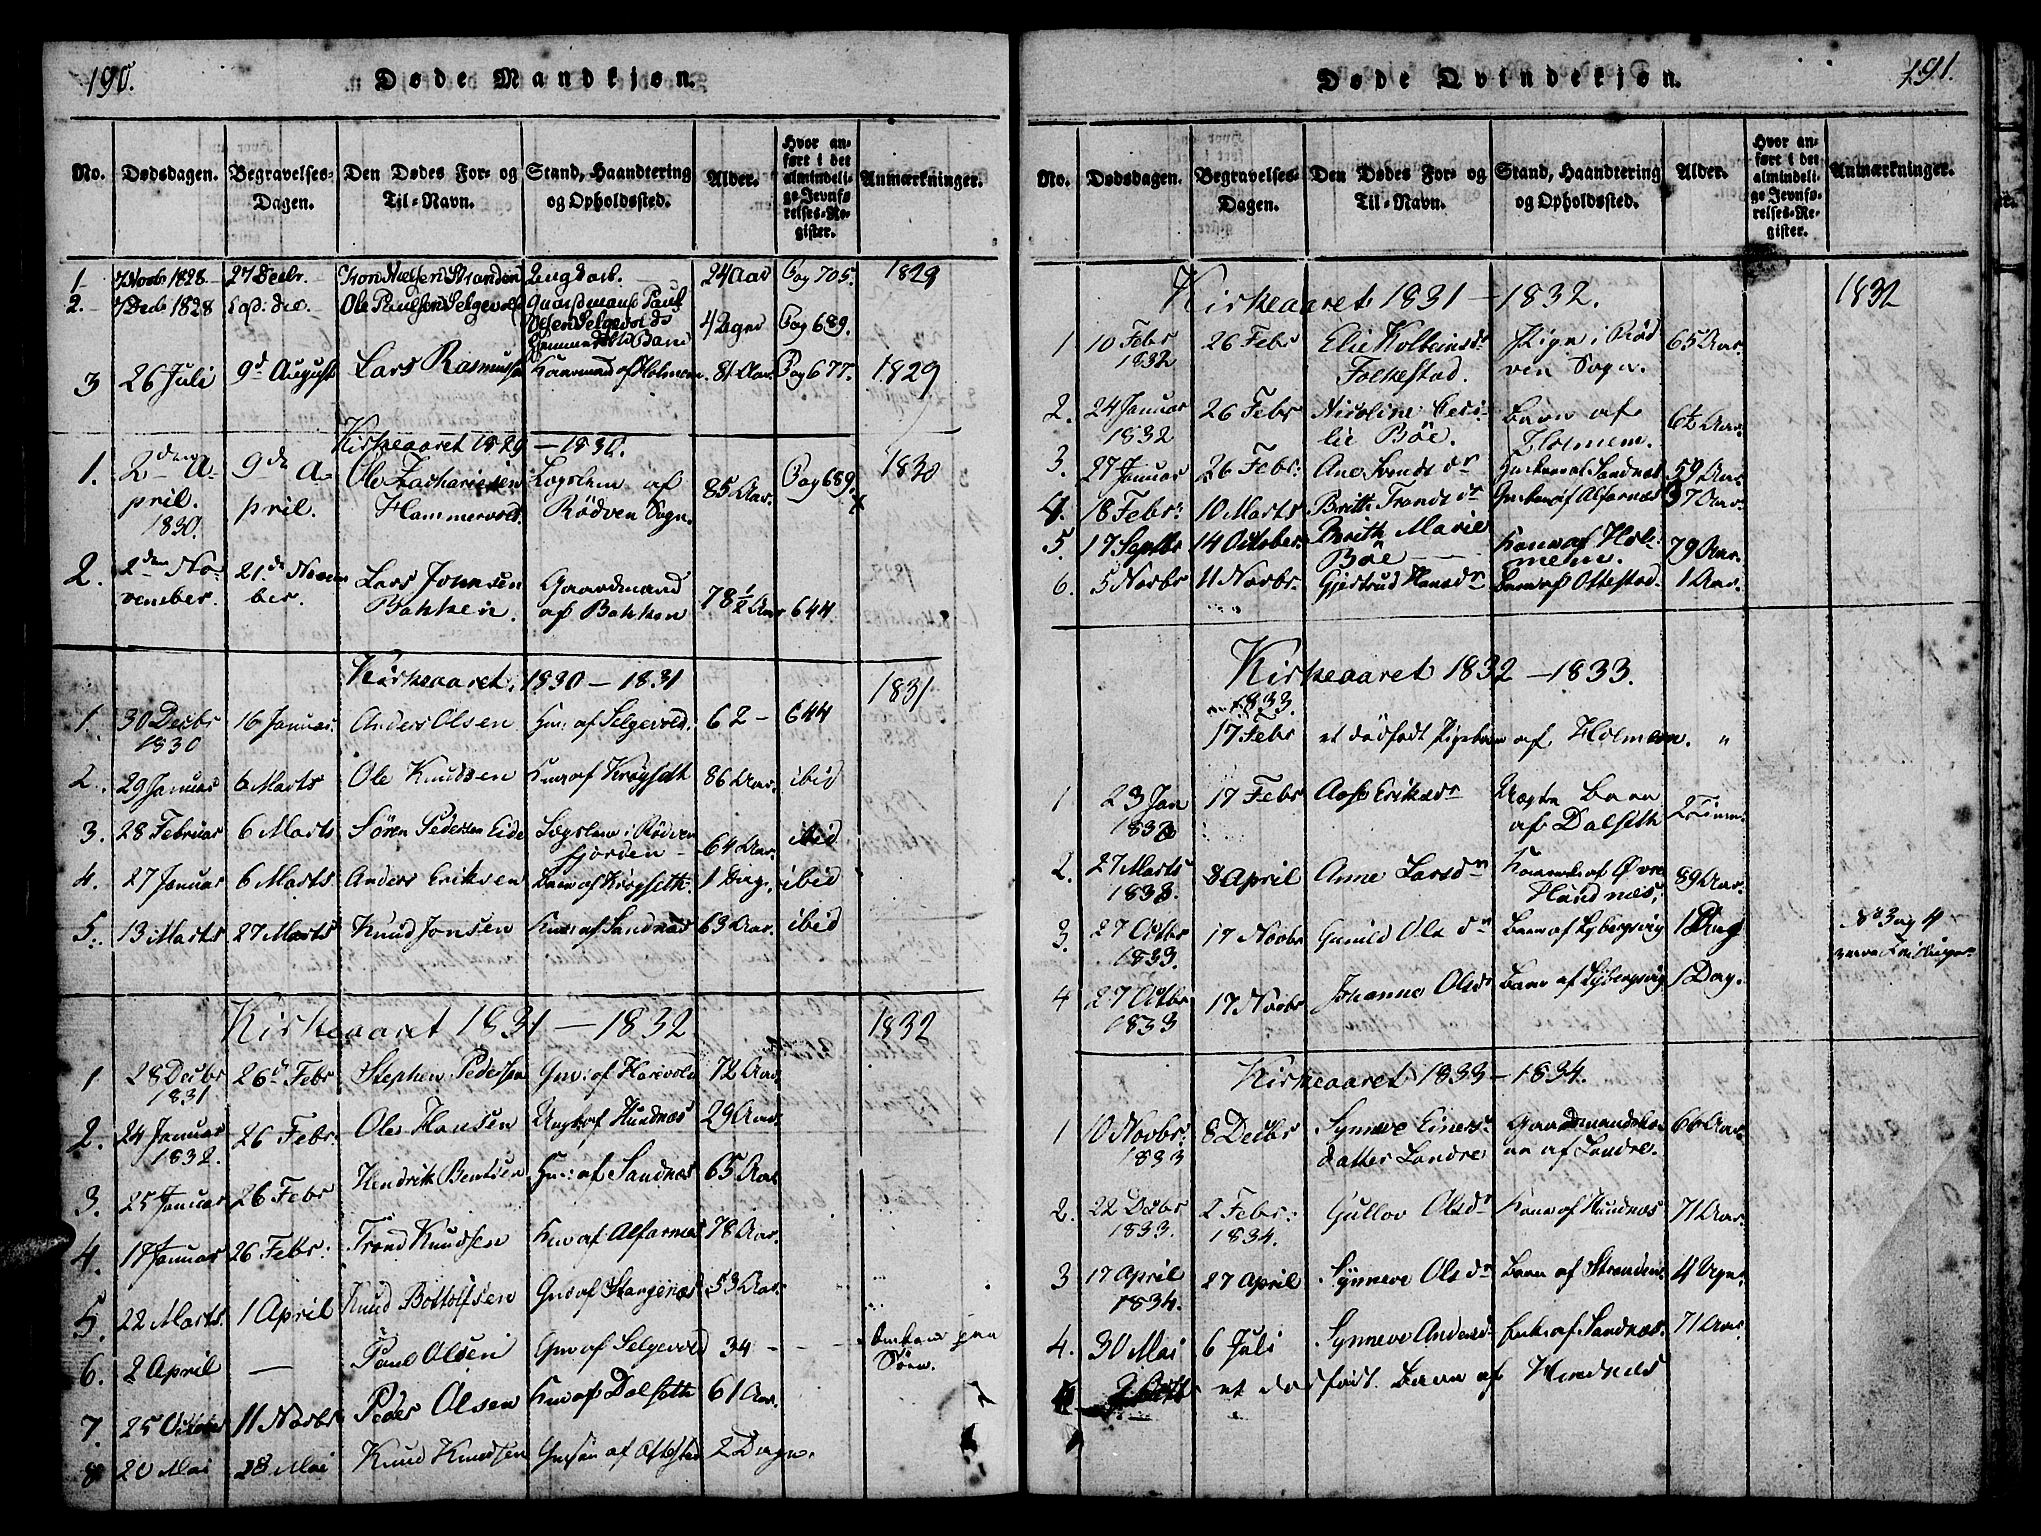 190.
Døde Mandkjøn.
No. Dødsdagen. Begravelses-Dagen. Den Dødes For- og Til-Navn. Stand, Haandtering og Opholdssted. Alder. Hvor anført i det almindelige Jevnførelses-Register. Anmærkninger.
1 7 Novb 1828 27 Decbr. Stranden 24 Aar Pag 705. 1829
2. 7 Decb 1828 Ole Paulsen Selgevold Gaardmand Paul Barn 4 Dage Pag 689.
3 26 Juli 9d August Lars Rasmussen af Holmem 81 Aar. Pag 677. 1829
Kirkeaaret 1829 — 1830.
1. 2den April. 1830. 9de April. Ole Zachariesen Hammervold. Logslem af Rödven Sogn. 85 Aar. Pag 689. x 1830
2. 2den November. 21de November. Lars Johnsen Bakken. Gaardmand af Bakken 78½ Aar 644.
Kirkeaaret. 1830 — 1831 1831
1. 30 Decbr 1830 16 Januar. Anders Olsen af Selgevold. 62 — 644
2. 29 Januar 6 Marts Ole Knudsen af Krøgseth 86 Aar. ibid
3. 28 Februar 6 Marts Sören Pedersen Eide Logslem i Rødvenfjorden — 64 Aar. ibid
4. 27 Januar 6 Marts. Anders Eriksen Barn af Krøgseth. 1 Dag. ibid
5. 13 Marts 27 Marts Knud Jonsen af Sandnæs 63 Aar. ibid
Kirkeaaret 1831 — 1832 1832
1 28 Decbr 1831. 26d Febr Stephen Pedersen Gm: af Harevold 72 Aar.
2. 24 Januar 1832. 26 Febr. Ole Hansen af Hundnæs 29 Aar.
3. 25 Januar 26 Febr Hendrik Bentsen af Sandnæs 65 Aar
4. 17 Januar 26 Febr: Trond Knudsen af Alfarnes 78 Aar.
5. 22 Marts. 1 April Knud Bottolfsen af Stangenæs 53 Aar.
6. 2 April — Paul Olsen af Selgevold 34 — Omkom paa Söen.
7. 25 October 11 Novbr Peder Olsen af Dalseth 61 Aar.
8 20 Mai 28 Mai Knud Knudsen af Ottestad 2 Dage.
191.
Døde Qvindekjøn.
No. Dødsdagen. Begravelses-Dagen. Den Dødes For- og Til-Navn. Stand, Haandtering og Opholdssted. Alder. Hvor anført i det almindelige Jevnførelses-Register. Anmærkninger.
Kirkeaaret 1831 — 1832. 1832
1 10 Febr 1832 26 Febr Folkestad. Pige i Rödven Sogn. 65 Aar.
2. 24 Januar 1832 26 Febr Nicoline Cecilie Böe. Barn af Holmem. 6½ Aar.
3. 27 Januar 26 Febr: Ane af Sandnæs 59 Aar
4. 18 Febr: 10 Marts Britt Tronds dr af Alfarnæs 37 Aar.
5. 17 Septbr 14 October. Brith Marie Böe Kone af Holmem. 79 Aar.
6. 5 Novbr 11 Novbr. Gjertrud Hansdr Barn af Ottestad. 1 Aar.
Kirkeaaret 1832 — 1833.
1833.
17 Febr et dødfødt Pigebarn af Holmem. "
1 23 Jan 1833 17 Febr Eriksdr Barn af Dalseth 2 Timer.
2. 27 Marts 1833. 8 April Anne Larsdr af Øvre Hundnes, 89 Aar.
3. 27 Octbr 1833. 17 Novbr Gunild Ols dr Barn af 1 Dag
4 27 Octbr 1833 17 Novbr Johanne Olsdr Barn af 1 Dag.
Kirkeaaret 1833 — 1834.
1 10 Novbr. 1833 8 Decbr Synneve Einersdatter Landre af Landre. 66 Aar.
2. 22 Decbr 1833. 2 Febr: 1834. Gullov Olsdr Kone af Hundnæs 71 Aar.
3 17 April 1834. 27 April Synneve Olsdr Barn af Stranden. 4 Uger.
4. 30 Mai 6 Juli Synneve Andersd. Enke af Sandnæs. 71 Aar.
et dødfødt Barn af Hundnæs